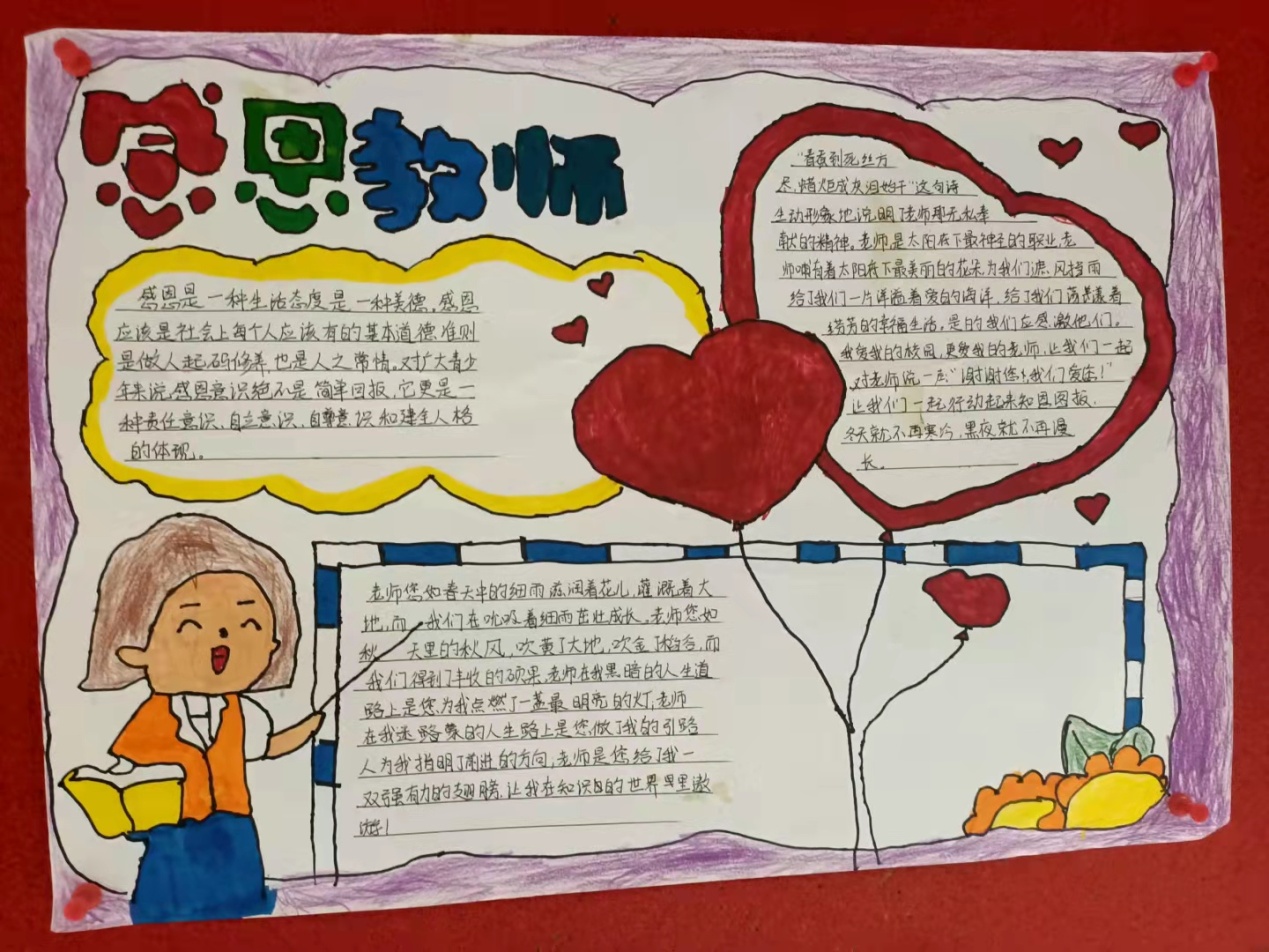 感恩教师
感恩是一种生活态度是一种美德。感恩
应该是社会上每个人应该有的基本道德准则
是做人起码修养也是人之常情。对扩大青少
年来说感恩意识绝不是简单回报，它更是一
种责任意识，自立意识，自尊意识和建全人格
的体现。
"春蚕到死丝方
尽，蜡炬成灰泪始干"这句诗
生动形象地说明了老师那无私奉
献的精神。老师是太阳底下最神圣的职业，老
师哺育着太阳底下最美丽的花朵为我们遮风挡雨
给了我们一片洋溢着爱的海洋，给了我们荡漾着
芳的幸福生活。是的我们应感激他们。
我爱我的校园，更爱我的老师，让我们一起
对老师说一声"谢谢您！我们爱您！"
让我们一起行动起来知恩图报，
冬天就不再寒冷，黑夜就不再漫
长。
老师您如春天中的细雨滋润着花儿，灌溉着大
地，而我们在吮吸着细雨茁壮成长。老师您如
秋天里的秋风，吹黄了大地，吹金了稻谷，而
我们得到了丰收的硕果。老师在我黑暗的人生道
路上是您为我点燃了一盏最明亮的灯，老师
在我迷路的人生路上是您做了我的引路
人为我指明了前进的方向，老师是您给了我一
双强有力的翅膀，让我在知识的世界里遨
游！